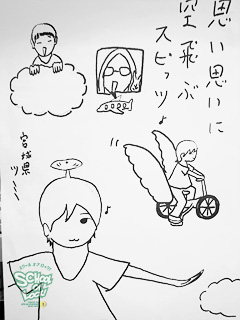 思い思いに
空飛ぶ
スピッツ♪
宮城県
ツミ
SCHOOL OF LOCK!